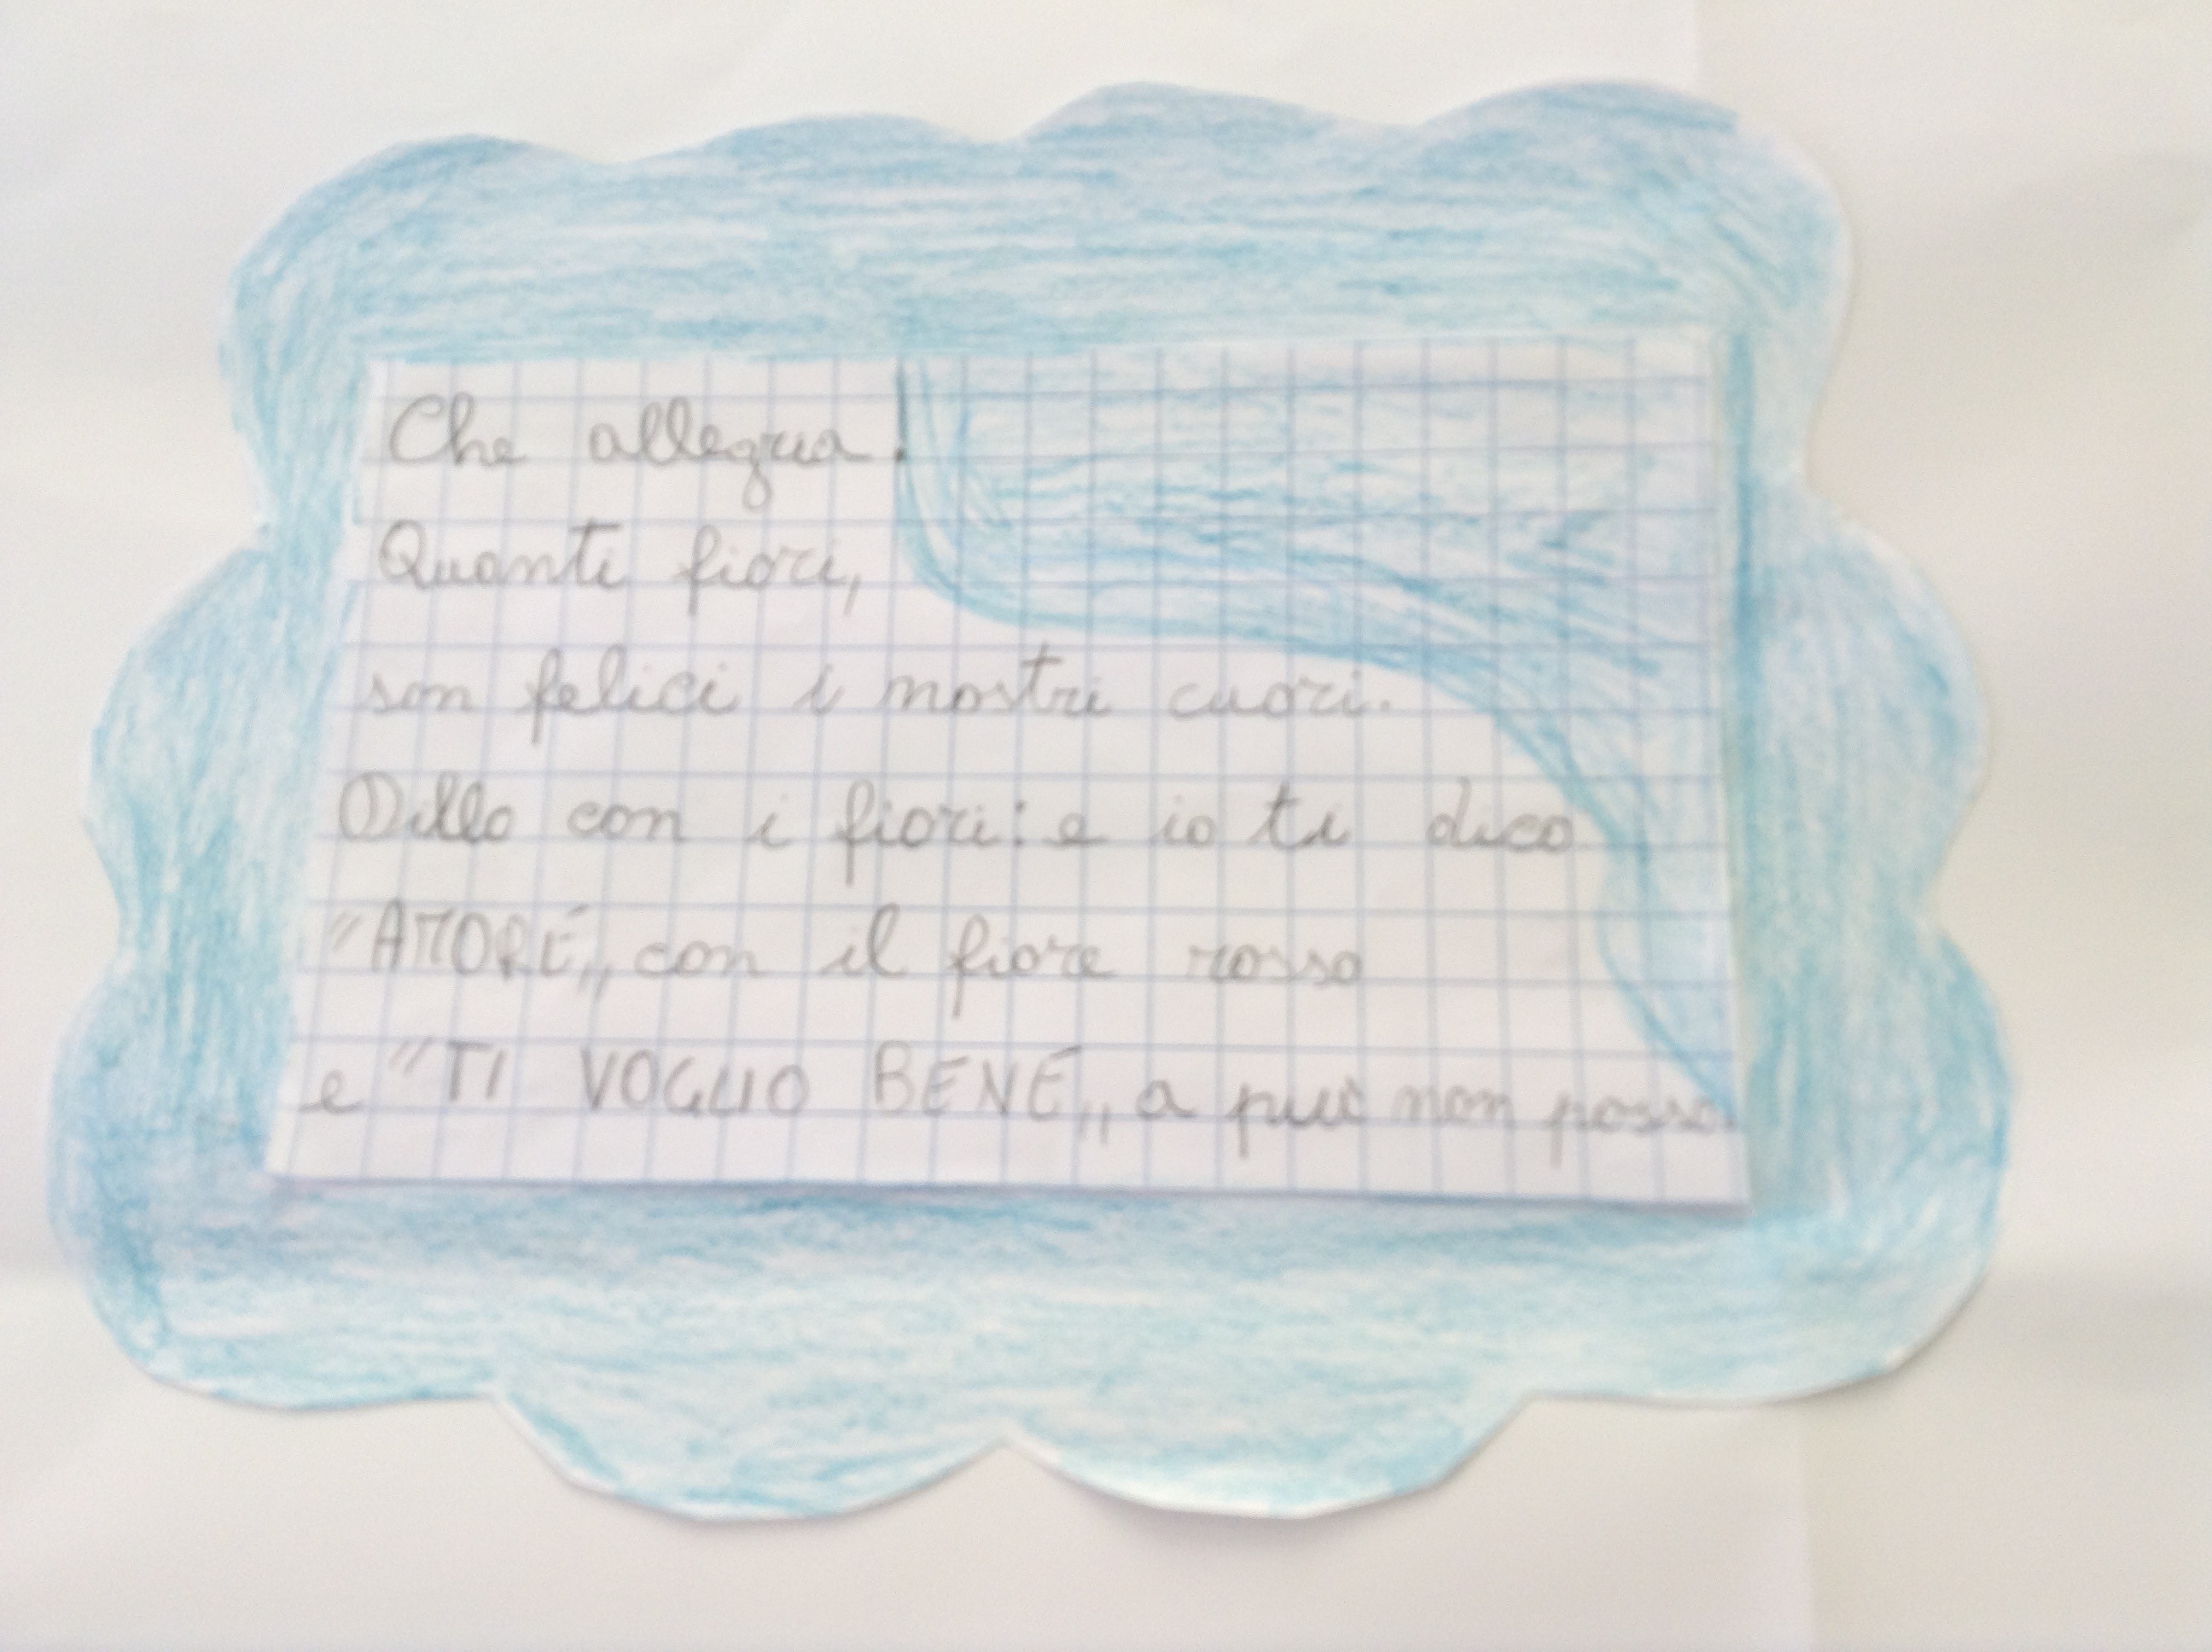 Che allegria!
Quanti fiori,
son felici i nostri cuori.
Dillo con i fiori: e io ti dico
"AMORE" con il fiore rosso
e "TI VOGLIO BENE" a più non posso.